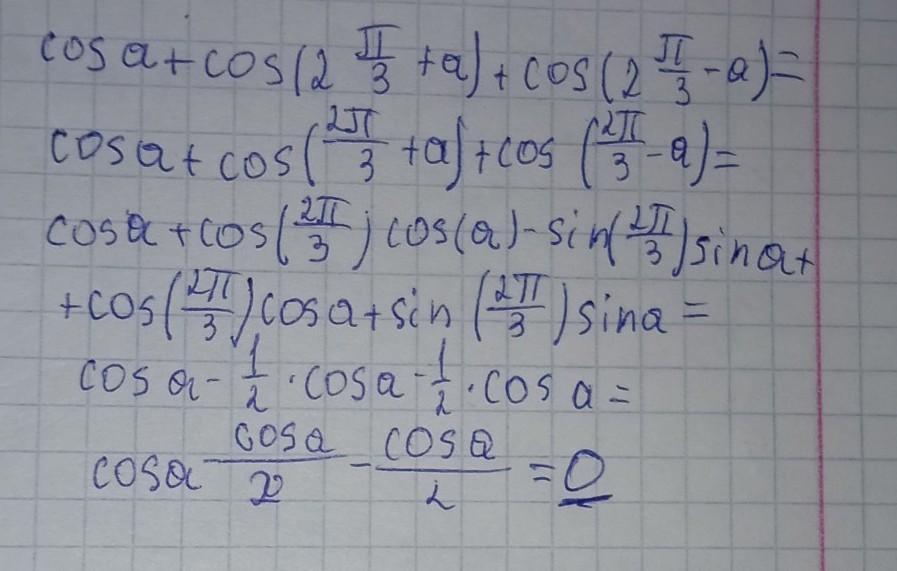 cosa+cos(2 π/3 +a)+cos(2 π/3 -a)=
cosa+cos(2π/3 +a)+cos (2π/3 -a)=
cosa+cos(2π/3) cos(a)-sin(2π/3)sina+
+cos(2π/3)cosa+sin (2π/3)sina=
cos a- 1/2 ·cosa- 1/2 ·cos a=
cosa- cosa/2 - cosa/2 =0